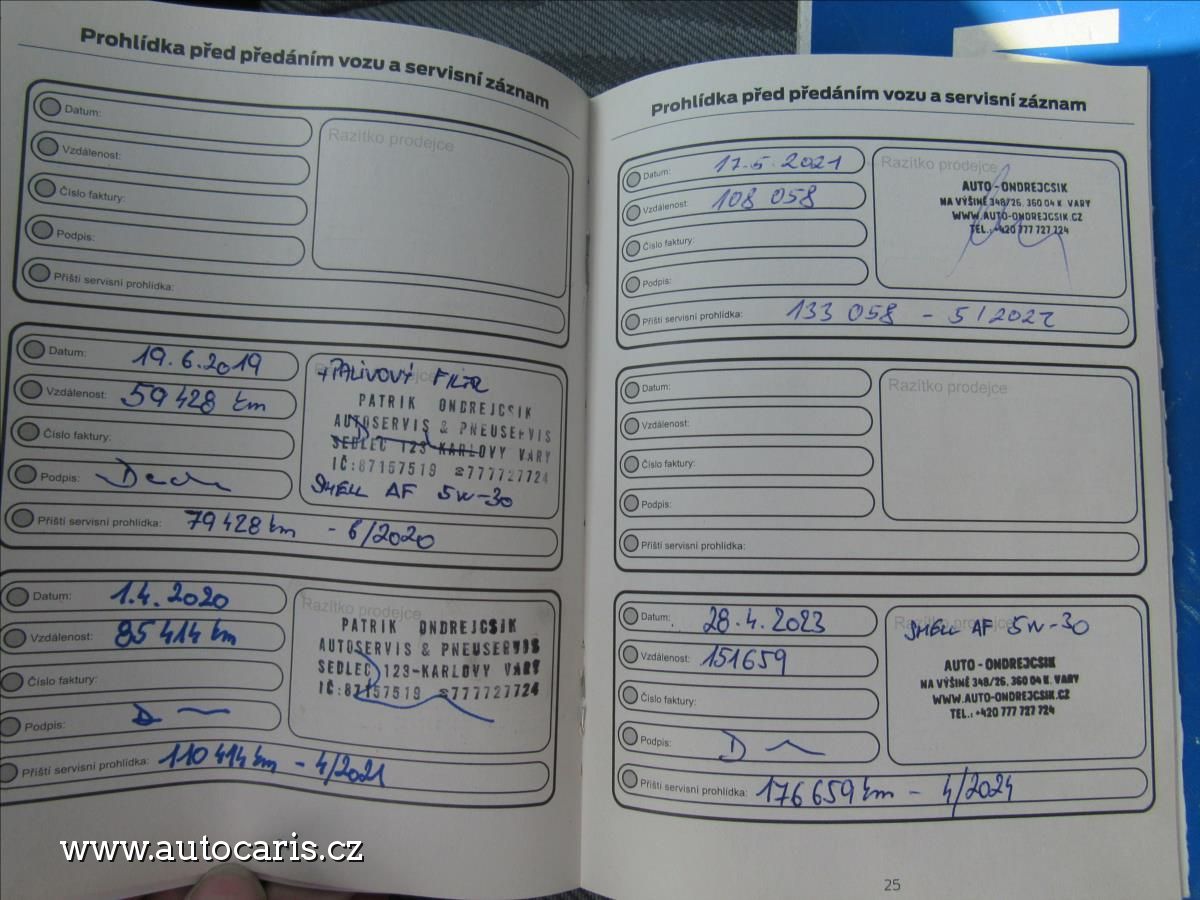 Prohlídka před předáním vozu a servisní záznam
Datum:
Razítko prodejce
Vzdálenost:
Číslo faktury:
Podpis:
Příští servisní prohlídka:
Datum: 19.6.2019
+PALIVOVÝ FILTR
Vzdálenost: 59 428 km
PATRIK ONDREJCSIK
AUTOSERVIS & PNEUSERVIS
Číslo faktury:
SEDLEC 123-KARLOVY VARY
IČ:87157519 ☎777727724
Podpis:
SHELL AF 5W-30
Příští servisní prohlídka: 79 428 km - 6/2020
Datum: 1.4.2020
Razítko prodejce
PATRIK ONDREJCSIK
Vzdálenost: 85 414 km
AUTOSERVIS & PNEUSERVIS
SEDLEC 123-KARLOVY VARY
Číslo faktury:
IČ:87157519 ☎777727724
Podpis:
Příští servisní prohlídka: 110 414 km - 4/2021
www.autocaris.cz
Prohlídka před předáním vozu a servisní záznam
Datum: 17.5.2021
Razítko prodejce
AUTO - ONDREJCSIK
Vzdálenost: 108 058
NA VÝŠINĚ 348/26, 360 04 K. VARY
WWW.AUTO-ONDREJCSIK.CZ
TEL.: +420 777 727 724
Číslo faktury:
Podpis:
Příští servisní prohlídka: 133 058 - 5/2022
Datum:
Razítko prodejce
Vzdálenost:
Číslo faktury:
Podpis:
Příští servisní prohlídka:
Datum: 28.4.2023
Razítko prodejce
SHELL AF 5W-30
Vzdálenost: 151659
AUTO - ONDREJCSIK
NA VÝŠINĚ 348/26, 360 04 K. VARY
WWW.AUTO-ONDREJCSIK.CZ
TEL.: +420 777 727 724
Číslo faktury:
Podpis:
Příští servisní prohlídka: 176 659 km - 4/2024
25